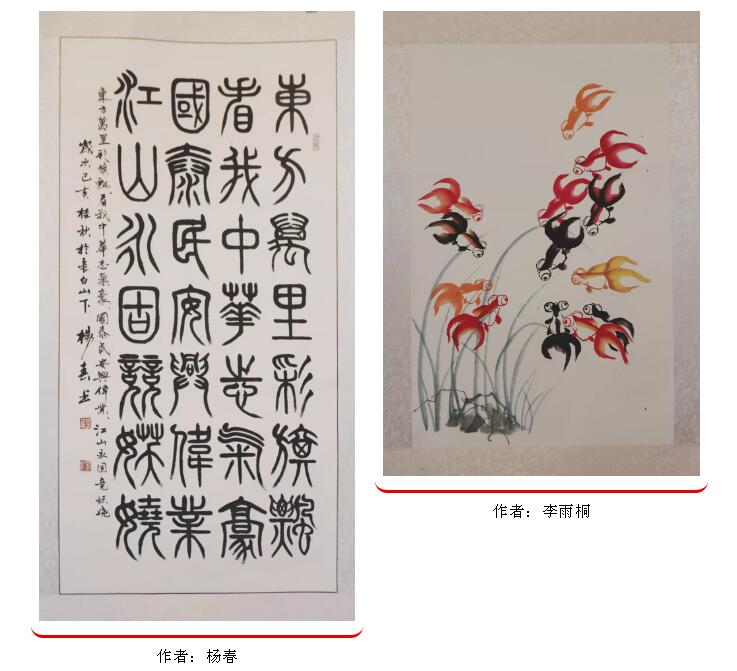 東方萬里彩旗飄
看我中華志氣豪
國泰民安興偉業
江山永固競妖嬈
東方萬里彩旗飄看我中華志氣豪國泰民安興偉業江山永固竞妖嬈
歲次己亥桂秋於長白山下 楊春书
作者：李雨桐
作者：杨春